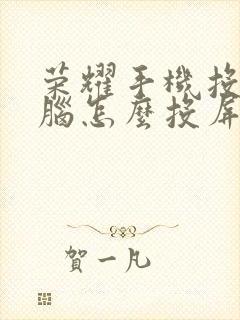 荣耀手機投
腦怎麼投屏
賀一凡